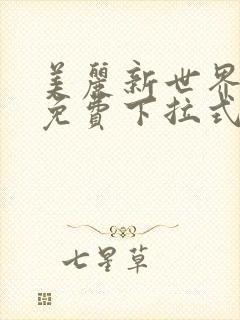 美麗新世界
免費下拉式
七星草